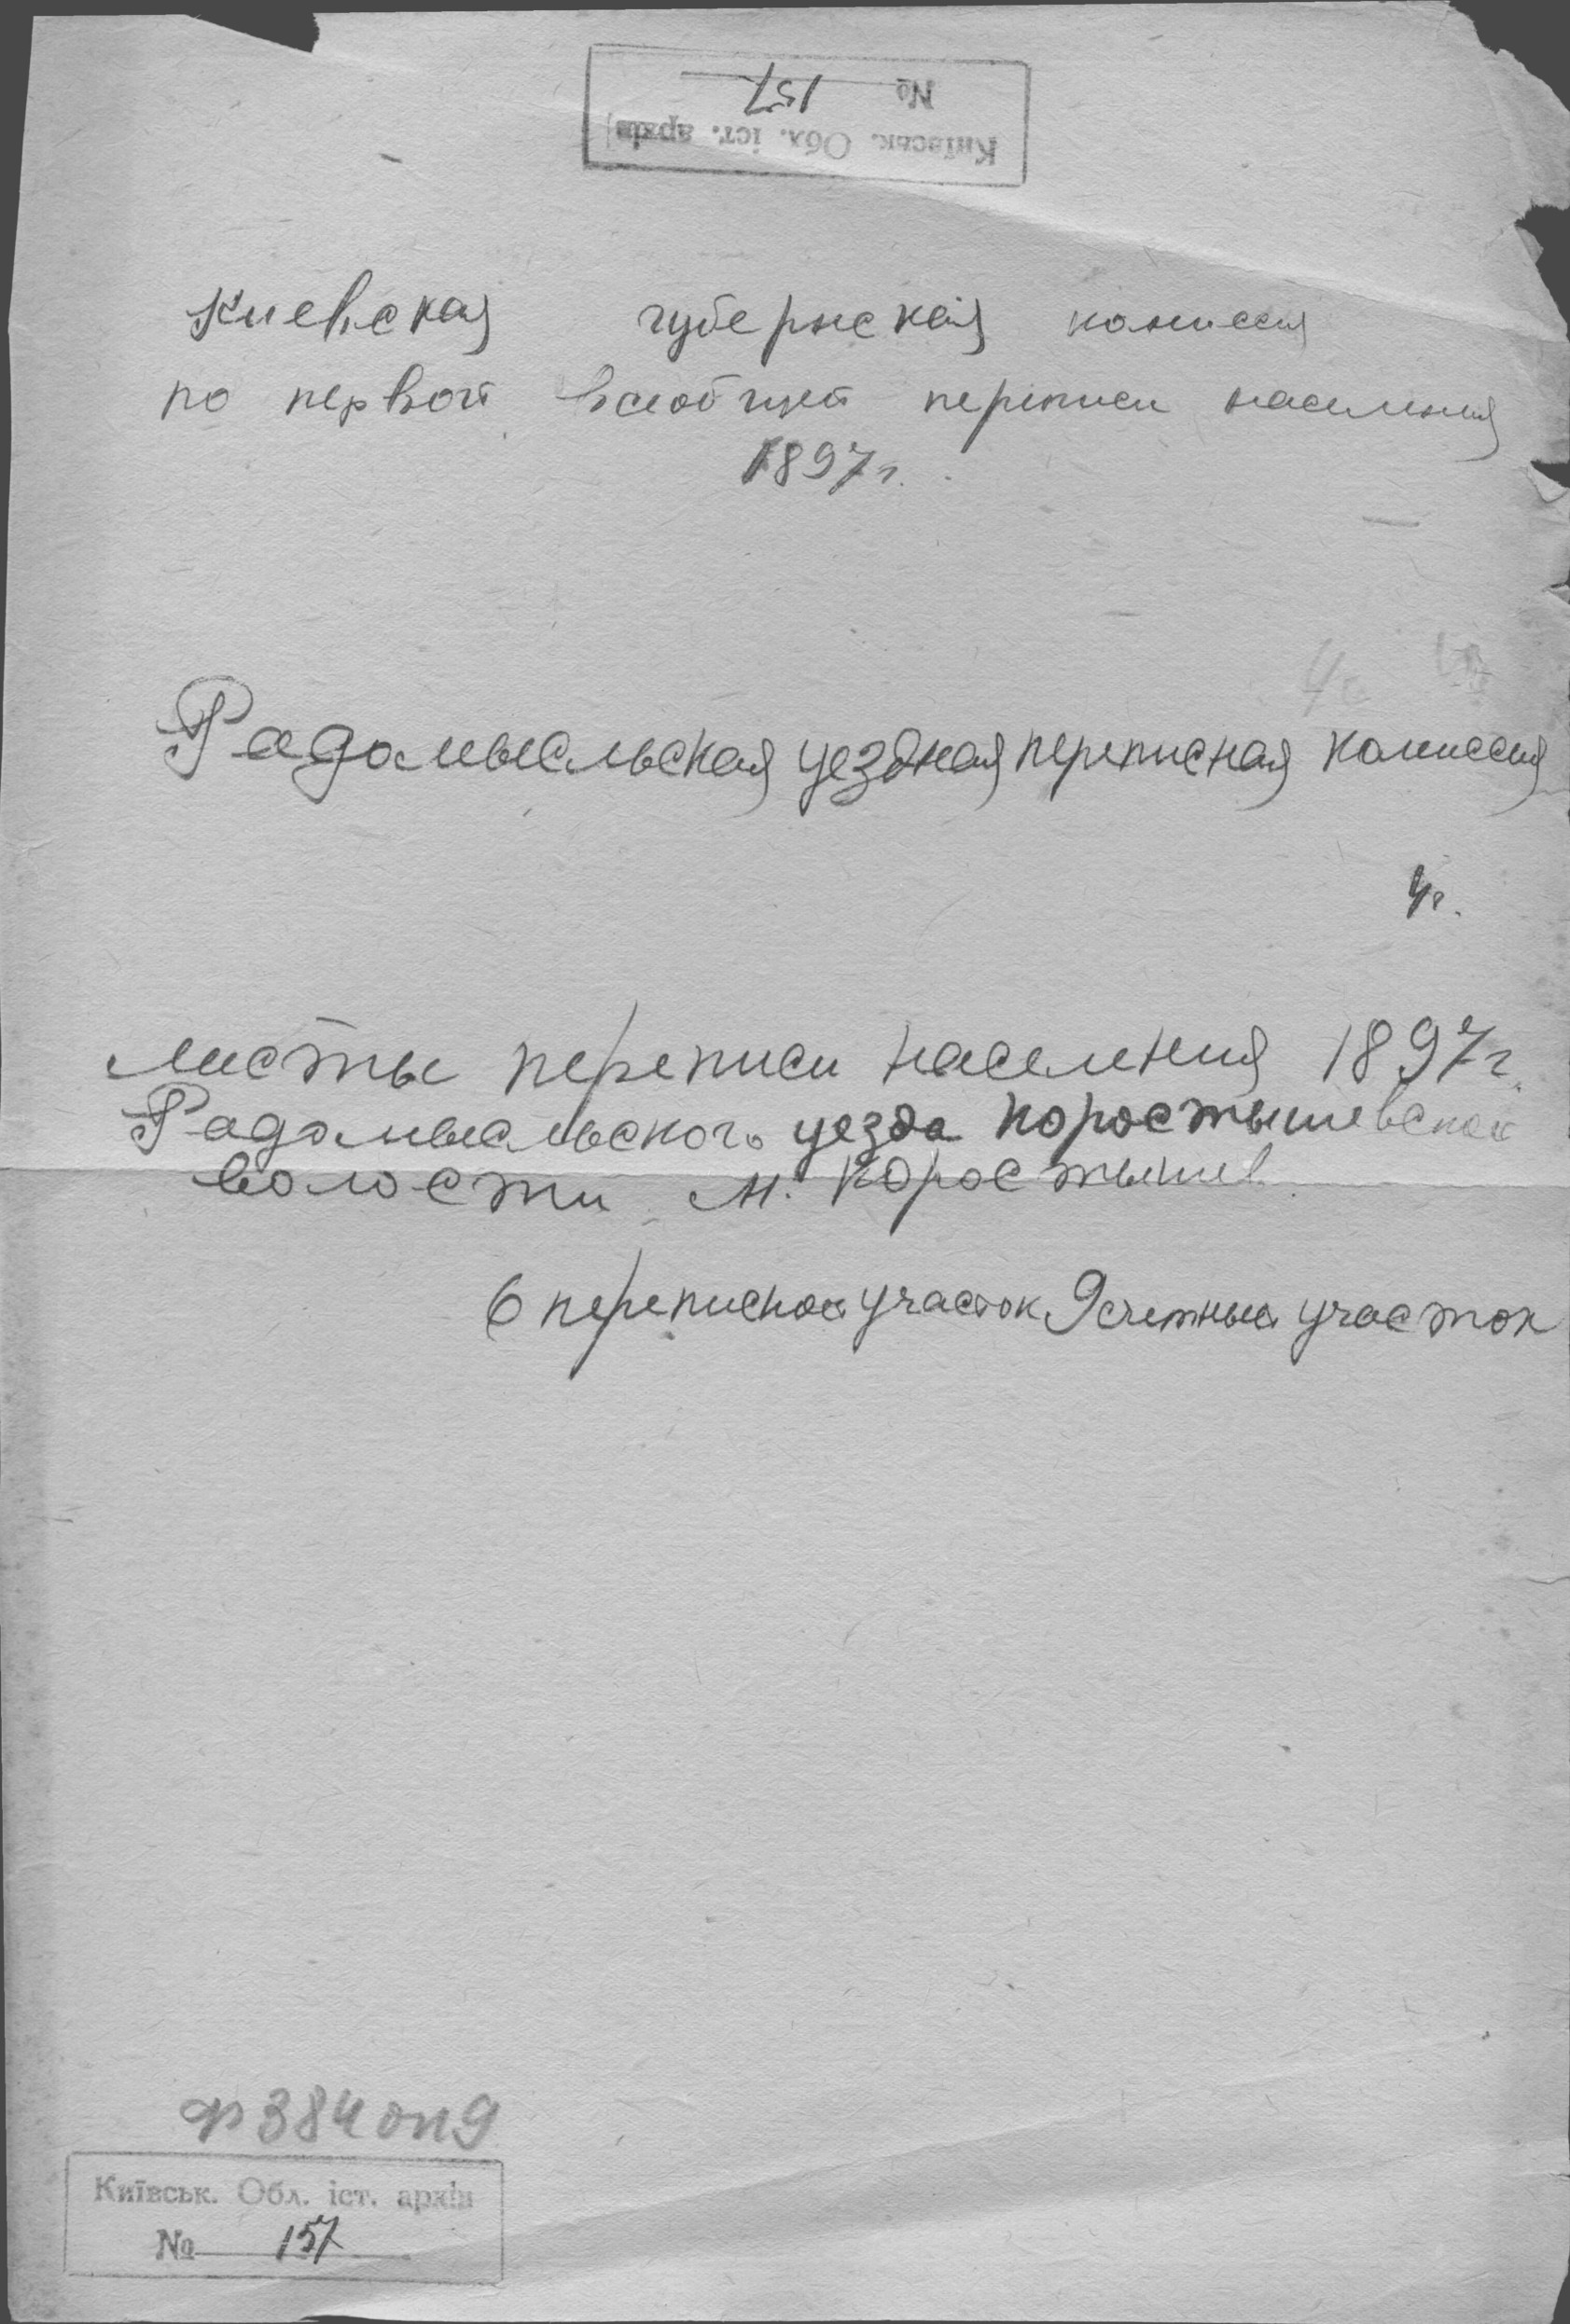 Київськ. Обл. іст. архів
№ 157
Киевская губернская комиссия
по первой всеобщей переписи населения
1897г.
Радомысльская уездная переписная комиссия
4г.
Листы переписи населения 1897г.
Радомысльского уезда Коростышевской
волости м. Коростышев
6 переписной участок 9 счетный участок
ф 384 оп 9
Київськ. Обл. іст. архів
№ 157